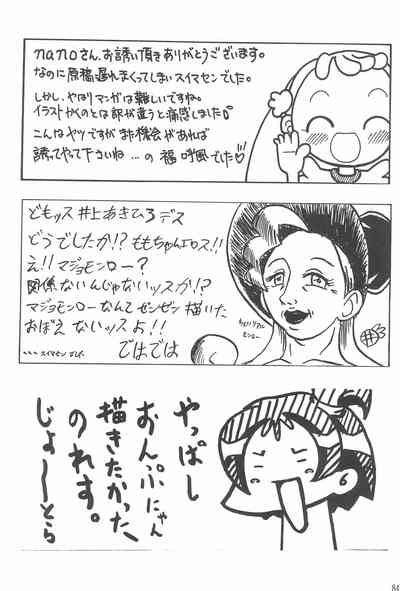 nanoさん、お誘い頂きありがとうございます。
なのに原稿遅れまくってしまいスイマセンでした。
しかし、やはりマンガは難しいですね。
イラストかくのとは訳が違うと痛感しました
こんなヤツですがまた機会があれば
誘ってやって下さいね …の 福 呼風でした♡
どもッス 井上あきひろデス
どうでしたか!? ももちゃんエロス!!
え!! マジョモンロー?
関係ないんじゃないッスか!?
マジョモンローなんてゼンゼン描いた
おぼえ ないッスよ!!
…スイマセン
ではでは
やっぱし
おんぷにゃん
描きたかった、
のれす。
じょーとら
84